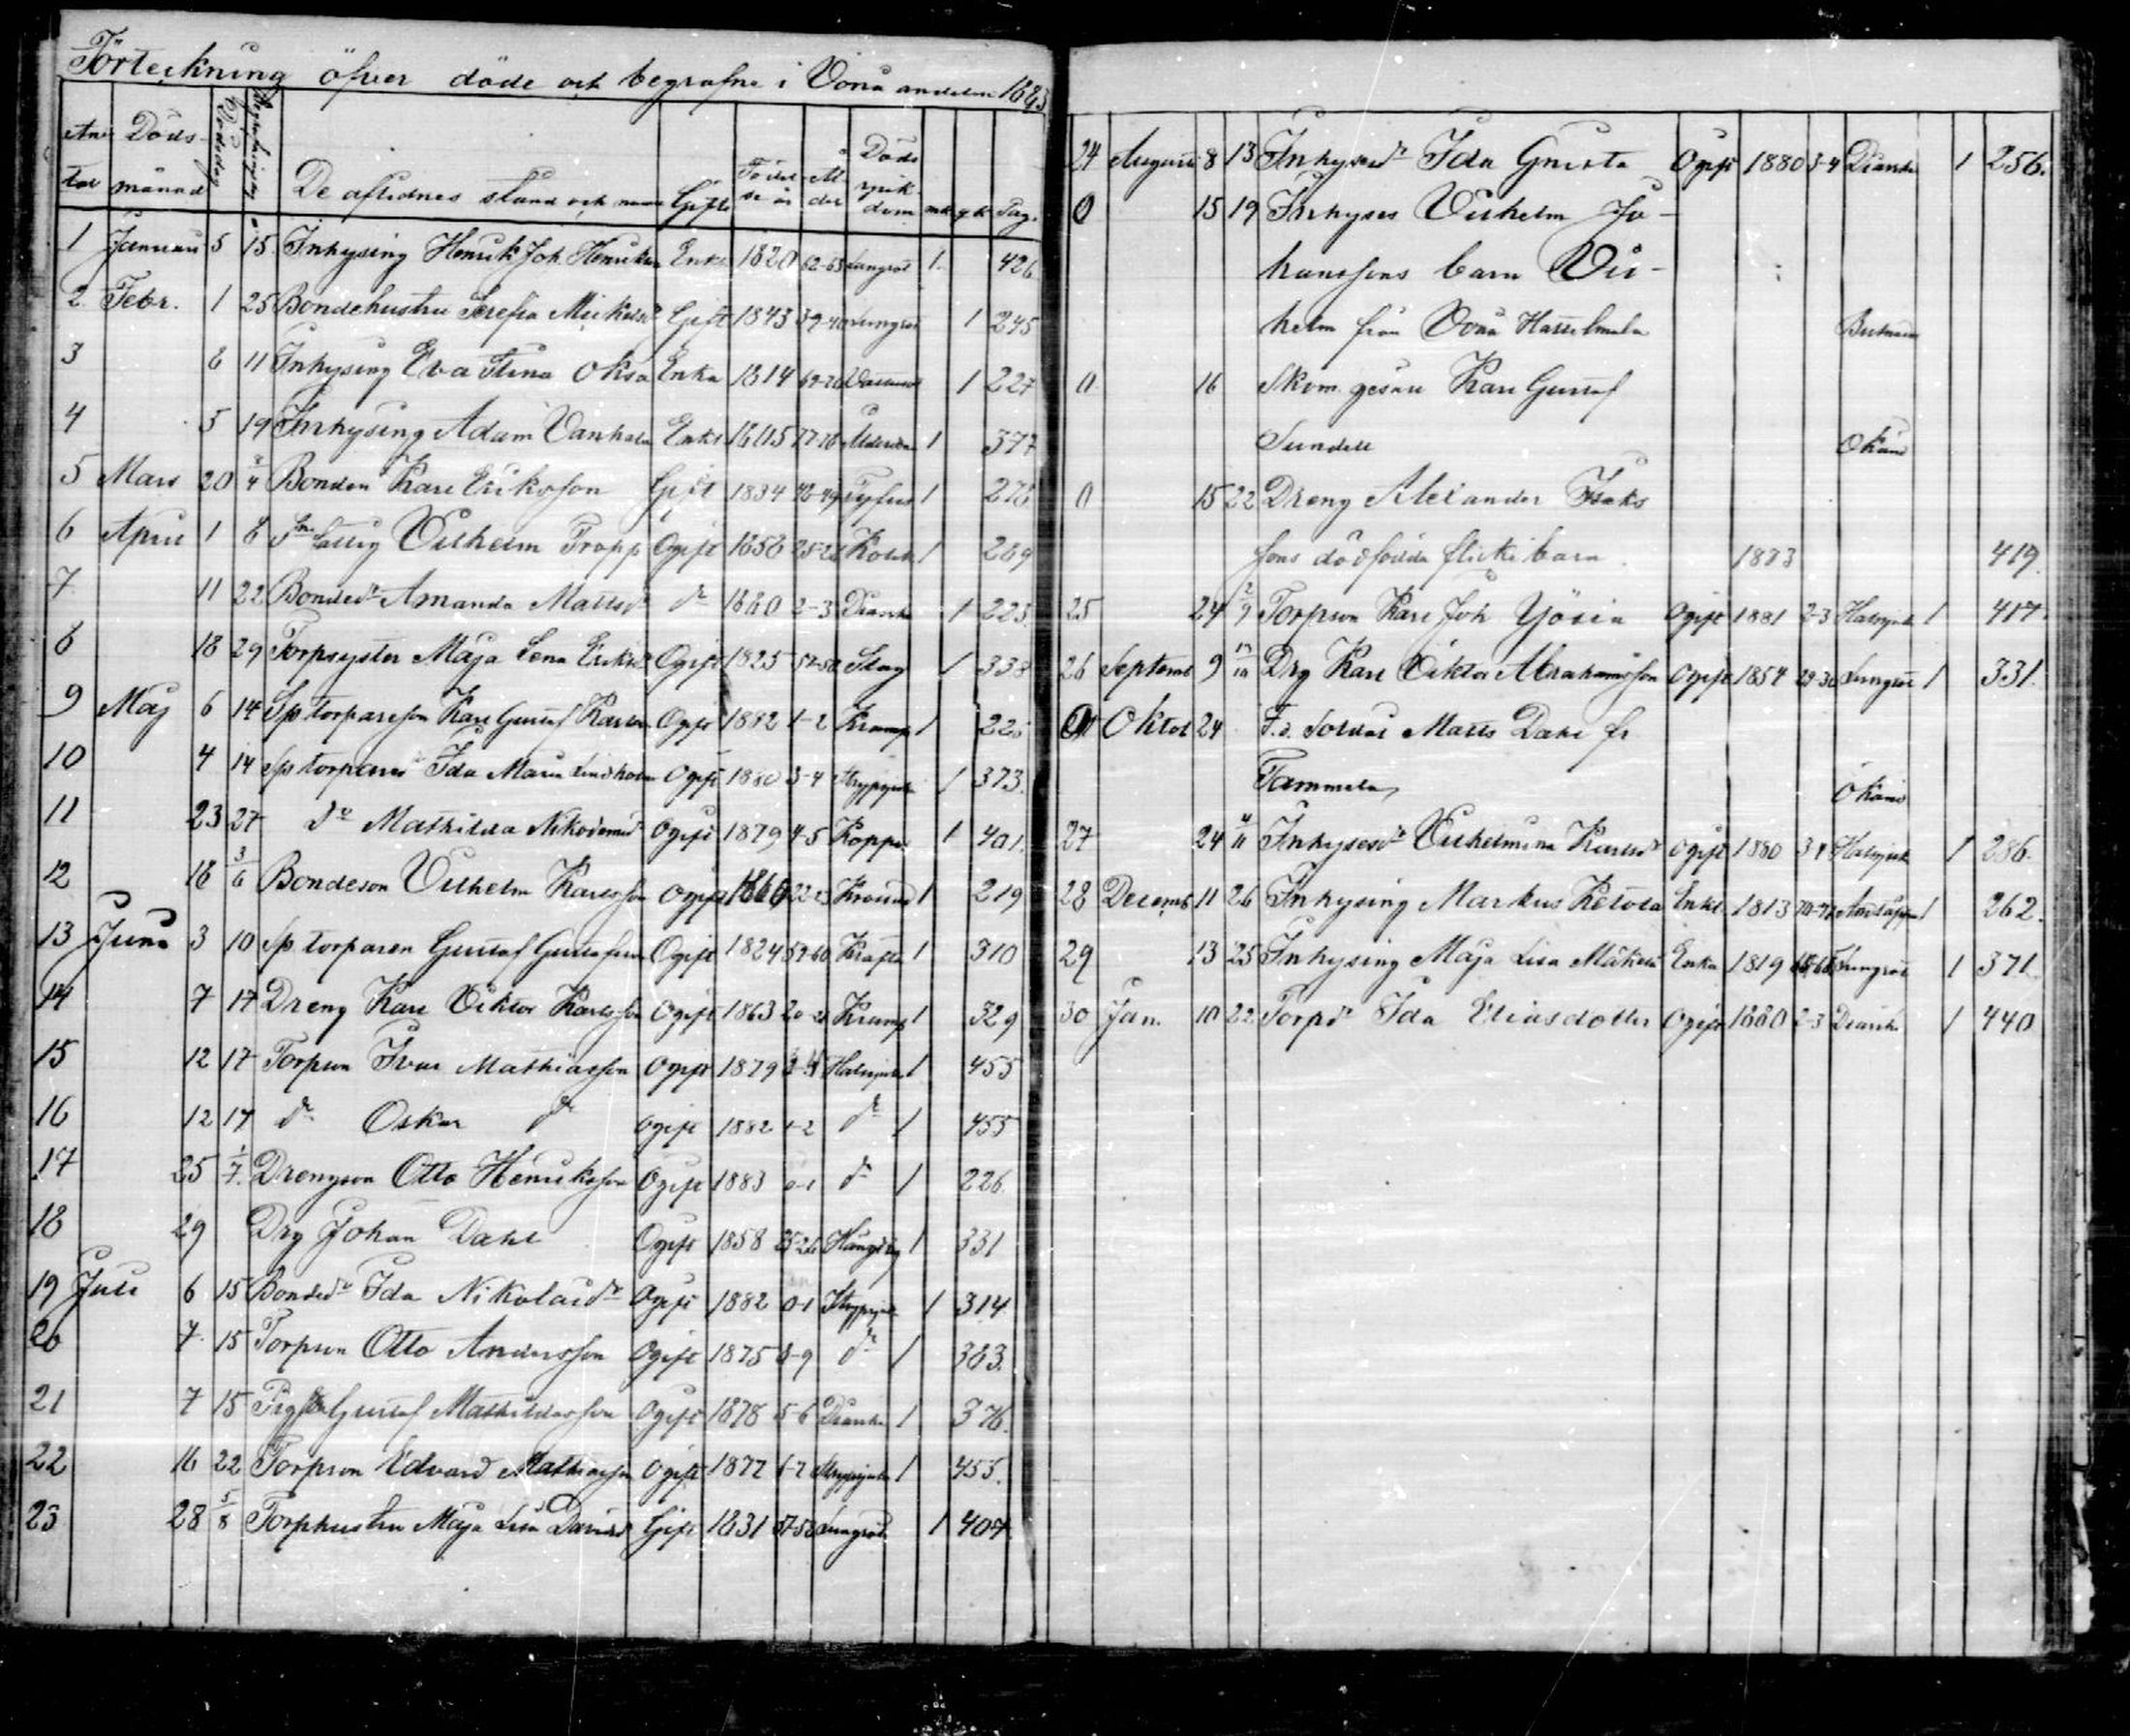 Förteckning öfver döde och begrafne i Vånå andelen 1883
Antal Döds månad Dödsdag Begrafningsdag De aflidnes stånd och namn Gifte Födelse år Ålder Döds sjukdom mk qk Pag.
1 Januari 5 15 Inhysing Henrik Joh Henriksson Enkl 1820 62-63 Lungsot 1 426
2 Febr. 1 25 Bondehustru Serefia Mickelsdr Gift 1843 39-40 Lungsot 1 245
3 6 11 Inhysing Eva Stina Oksa Enka 1814 69-70 1 227
4 5 19 Inhysing Adam Vanhala Enkl 1805 77-78 1 377
5 Mars 20 8/4 Bonden Karl Eriksson Gift 1834 48-49 Tyfus 1 276
6 April 1 8 Vilhelm Tropp Ogift 1858 1 289
7 11 22 Bondedr Amanda Mattsdr dr 1880 2-3 1 223
8 18 29 Torpsyster Maja Lena Eriksdr Ogift 1825 57-58 Slag 1 338
9 Maj 6 14 Sp torpareson Karl Gustaf Karlsson Ogift 1882 1-2 Kramp 1
10 4 14 Sp torparedr Ida Maria Lindholm Ogift 1880 3-4 Strypsjuka 1 373
11 23 27 do Mathilda Nikodemusdr Ogift 1879 4-5 Koppor 1 401
12 18 3/6 Bondeson Vilhelm Karlsson Ogift 1860 22-23 1 219
13 Juni 3 10 Sp torparen Gustaf Gustafsson Ogift 1824 59-60 Kräfta 1 310
14 7 17 Dreng Karl Viktor Karlsson Ogift 1863 20-21 Kramp 1 329
15 12 17 Torpson Ivar Mathiasson Ogift 1879 3-4 Halssjuka 1 455
16 12 17 dr Oskar dr Ogift 1882 1-2 dr 1 455
17 25 1/7 Drengson Otto Henriksson Ogift 1883 0-1 dr 1 226
18 29 Drg Johan Dahl Ogift 1858 25-26 Hängd sig 1 331
19 Juli 6 15 Bondedr Ida Nikolaidr Ogift 1882 0-1 Strypsjuka 1 314
20 7 15 Torpson Otto Andersson Ogift 1875 8-9 dr 1 383
21 7 15 Gustaf Mathildasson Ogift 1878 5-6 1 376
22 16 22 Torpson Edvard Mathiasson Ogift 1877 6-7 Strypsjuka 1 455
23 28 5/8 Torphustru Maja Lisa Davidsdr Gift 1831 57-58 Lungsot 1 404
24 Augusti 8 13 Inhysesdr Ida Gnista Ogift 1880 3-4 1 256
0 15 19 Inhyses Vilhelm Jo-
hanssons barn Vil-
helm från Vånå Hasselmala
0 16 Skom. gesäll Karl Gustaf
Sundell Okänd
0 15 22 Dreng Alexander Isaks
sons dödfödda flickebarn 1883 419
25 24 2/9 Torpson Karl Joh Yösin Ogift 1881 2-3 Halssjuka 1 417
26 Septemb 9 Drg Karl Viktor Abrahamsson Ogift 1854 29-30 Lungsot 1 331
0 Oktob 24 F.d. Soldat Matts Dahl fr
Tammela Okänd
27 24 4/11 Inhysesdr Vilhelmina Karlsdr Ogift 1880 3-4 Halssjuka 1 286
28 Decemb 11 26 Inhysing Markus Ketola Enkl 1813 70-71 1 262
29 13 25 Inhysing Maja Lisa Mäkelä Enka 1819 Lungsot 1 371
30 Jan. 10 22 Torpdr Ida Eliasdotter Ogift 1880 2-3 1 440